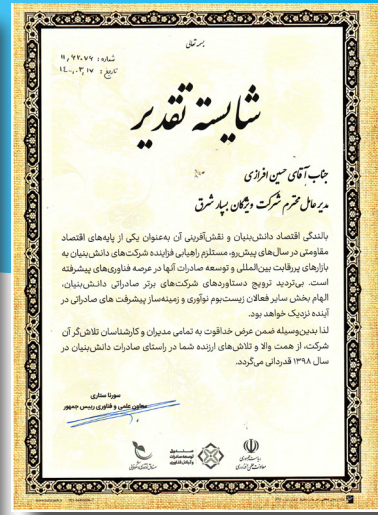 بسمه تعالی
شماره : ۱۱/۹۲۰۷۶
تاریخ : ۱۴۰۰/۰۳/۱۷
شایسته تقدیر
جناب آقای حسین افرازی
مدیرعامل محترم شرکت ویژگان بسپار شرق
بالندگی اقتصاد دانش‌بنیان و نقش‌آفرینی آن به‌عنوان یکی از پایه‌های اقتصاد
مقاومتی در سال‌های پیش‌رو، مستلزم راهیابی فزاینده شرکت‌های دانش‌بنیان به
بازارهای پررقابت بین‌المللی و توسعه صادرات آنها در عرصه فناوری‌های پیشرفته
است. بی‌تردید ترویج دستاوردهای شرکت‌های برتر صادراتی دانش‌بنیان،
الهام بخش سایر فعالان زیست‌بوم نوآوری و زمینه‌ساز پیشرفت های صادراتی در
آینده نزدیک خواهد بود.
لذا بدین‌وسیله ضمن عرض خداقوت به تمامی مدیران و کارشناسان تلاش‌گر آن
شرکت، از همت والا و تلاش‌های ارزنده شما در راستای صادرات دانش‌بنیان در
سال ۱۳۹۸ قدردانی می‌گردد.
سورنا ستاری
معاون علمی و فناوری رییس جمهور
ریاست جمهوری
معاونت علمی و فناوری
صندوق
توسعه صادرات
و تبادل فناوری